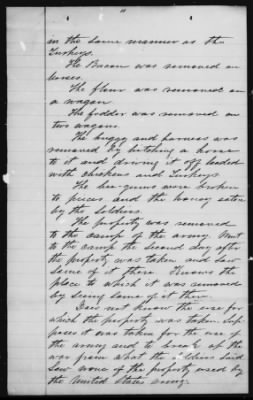 in the same manner as the
Turkeys.
The Bacon was removed on
horses.
The flour was removed
on a wagon.
The fodder was removed on
two wagons.
The buggy and harness was
removed by hitching a horse
to it and driving it off loaded
with chickens and Turkeys
The bee-gums were broken
to pieces and the honey eaten
by the Soldiers.
The property was removed
to the camp of the army. Went
to the camp the second day after
the property was taken and saw
some of it there. Knows the
place to which it was removed
by seeing some of it there.
Does not know the use for
which the property was taken. Sup
poses it was taken for the use of
the army and to break up the
war from what the soldiers said
Saw none of the property used by
the United States army.